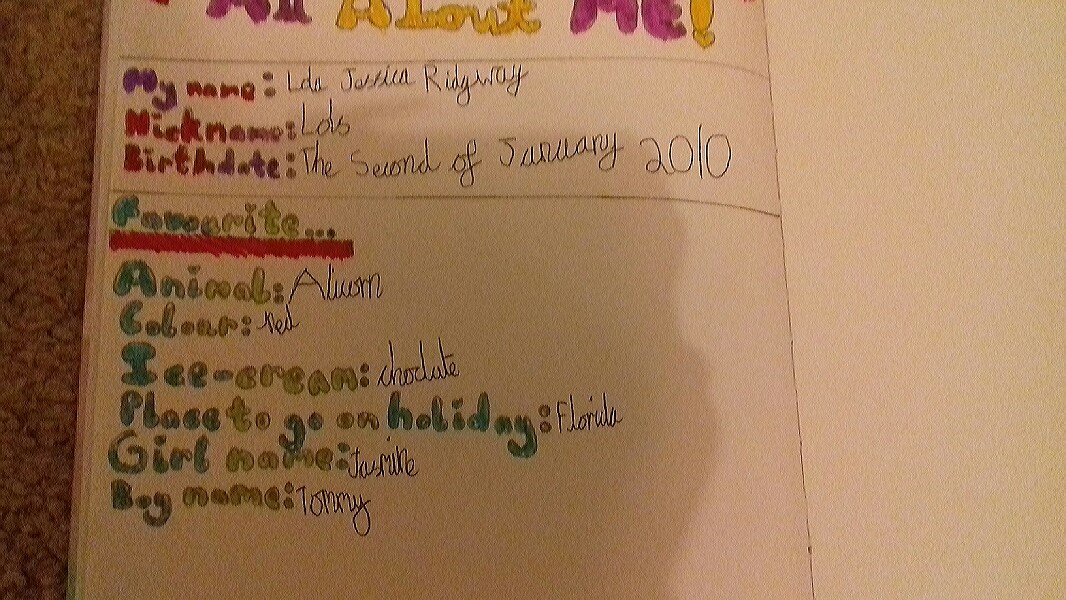 All About Me!
My name: Lois Jessica Ridgway
Nickname: Lois
Birthdate: The Second of January 2010
Favourite...
Animal: Alicorn
Colour: Red
Ice-cream: choclate
Place to go on holiday: Florida
Girl name: Jasmine
Boy name: Tommy